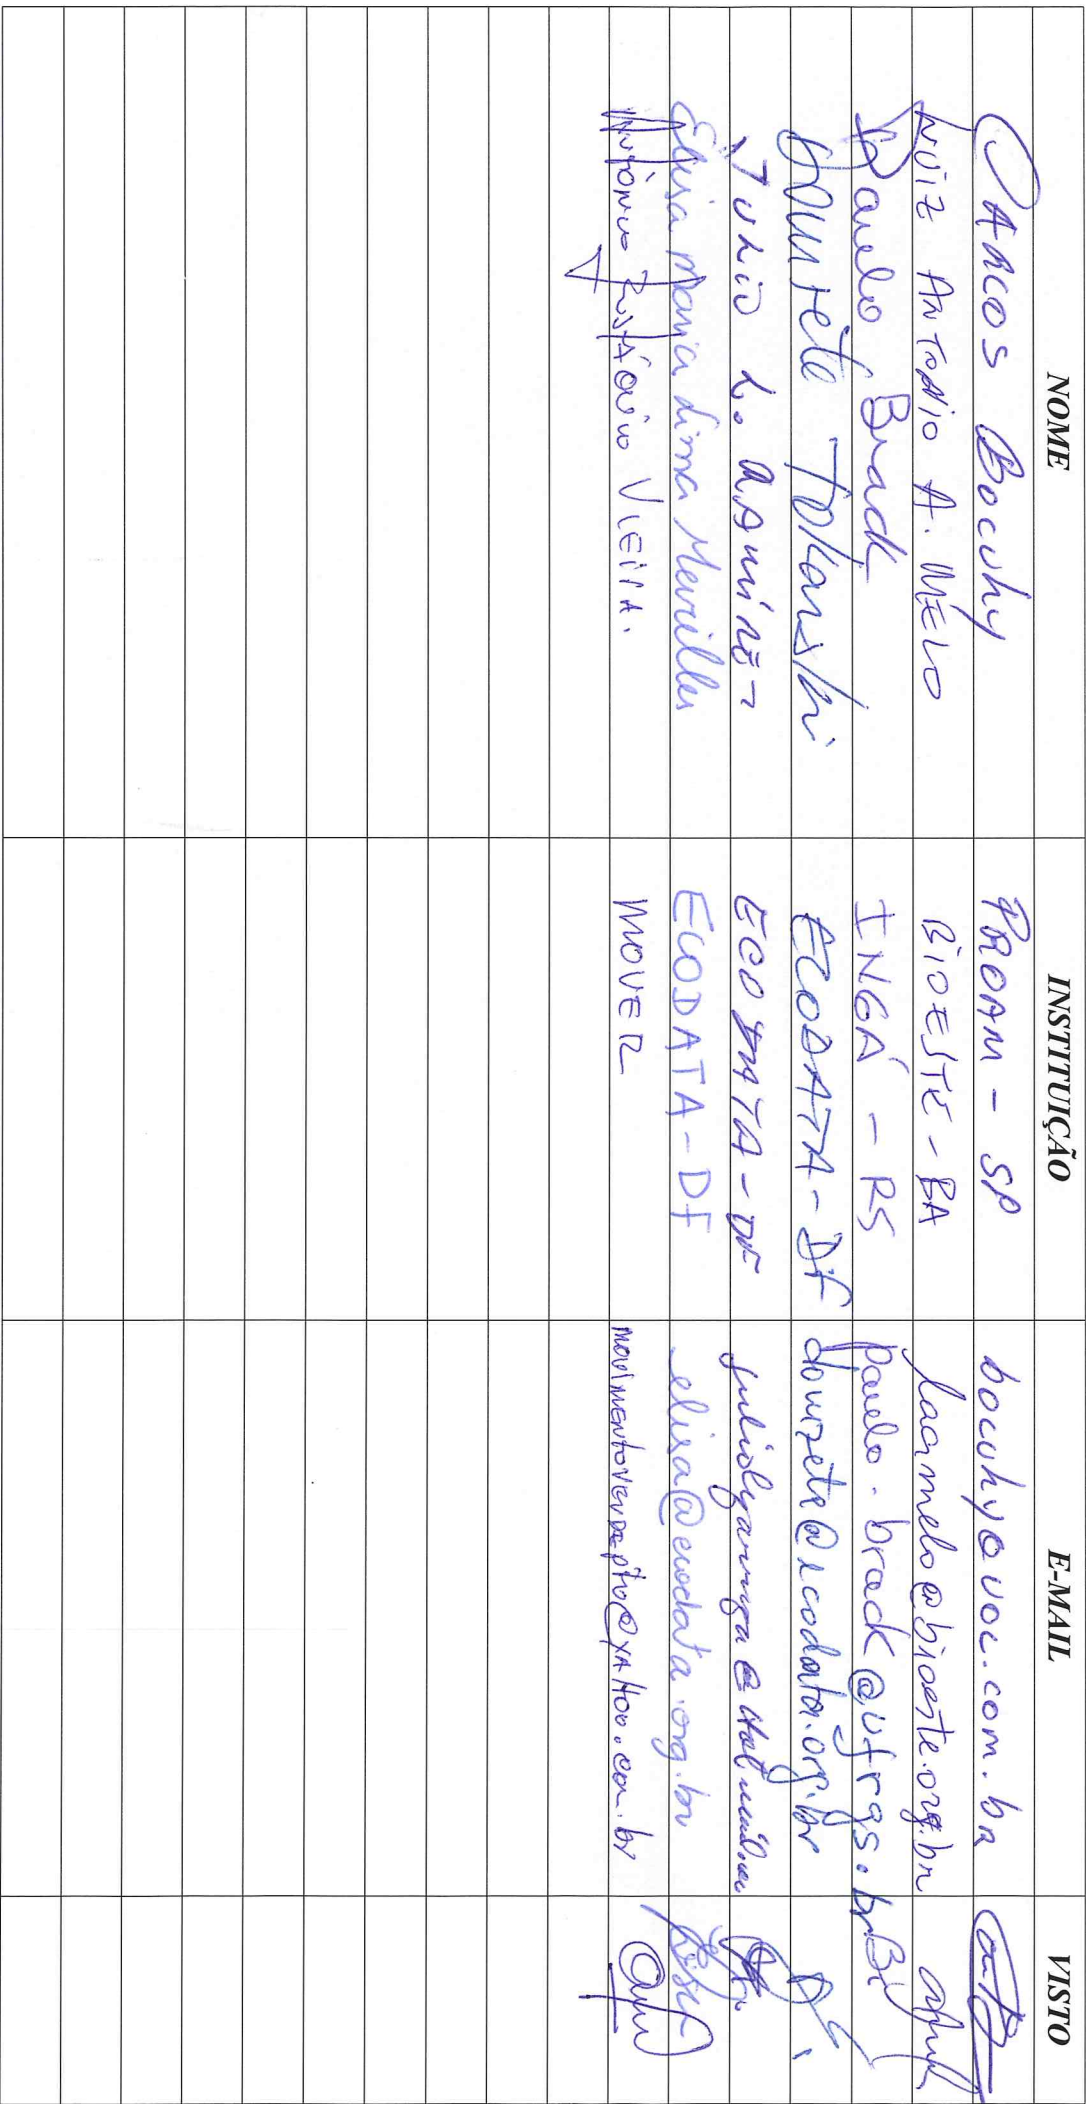 NOME INSTITUIÇÃO E-MAIL VISTO
Carlos Bocuhy PROAM - SP bocuhy@uol.com.br
Luiz Antonio A. Mélo BIOESTE - BA laamelo@bioeste.org.br
Paulo Brack INGÁ - RS paulo.brack@ufrgs.br
Donizete Tokarski ECODATA - DF donizete@ecodata.org.br
Julio L. ECODATA - DF
Elisa Maria Lima Meirelles ECODATA - DF elisa@ecodata.org.br
Antônio Eustáquio Vieira. MOVER